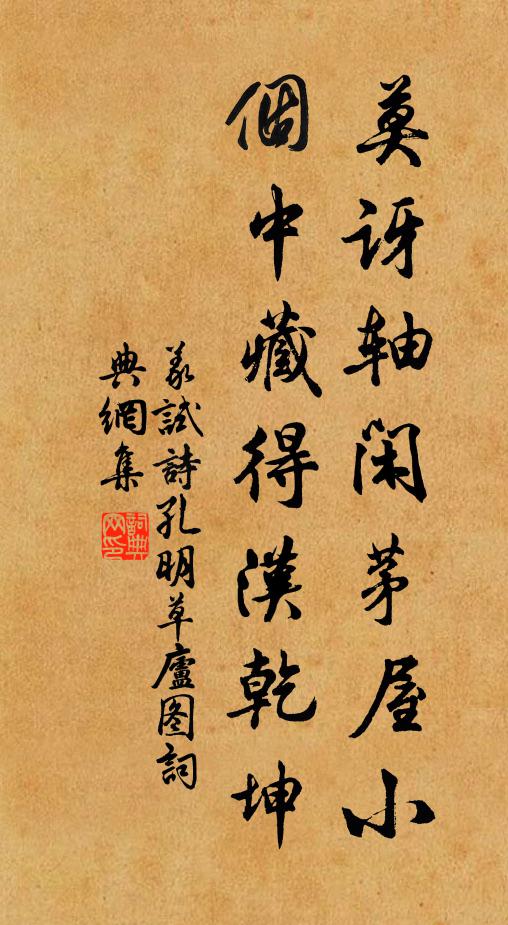 莫訝軸閑茅屋小
個中藏得漢乾坤
羕試詩孔明草廬图詞
典網集
詞典
网印